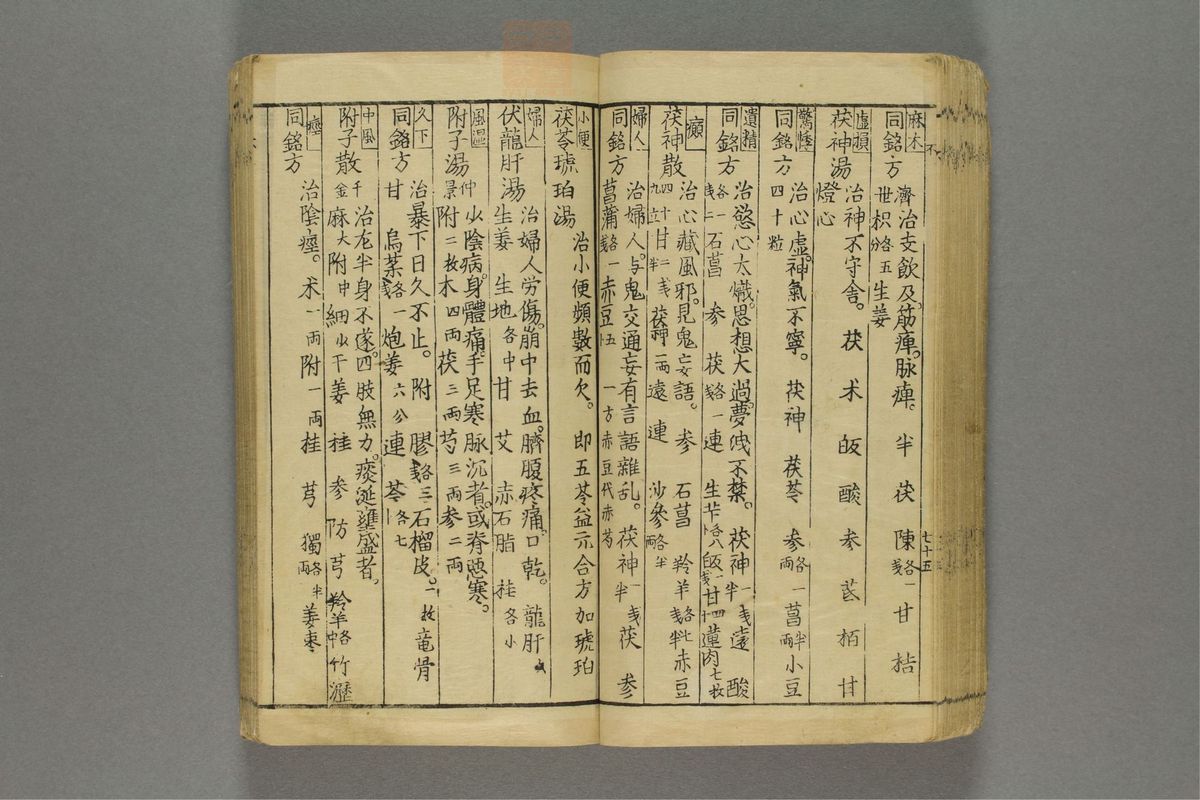 麻木
同銘方
濟治支飲及筋痺。脉痺。半 茯 陳各一戔 甘 桔
世枳各五分生姜
七十五
虚損
茯神湯
治神不守舍。茯 术 皈 酸 参 芪 栢 甘
燈心
驚悸
同銘方
治心虚。神氣不寧。茯神 茯苓 参各一両菖半両小豆
四十粒
遺精
同銘方
治慾心太熾。思想大過。夢洩不禁。茯神一戔半遠 酸
各一戔二石菖 参 茯各一戔連 生芐各八卜皈一戔甘四卜蓮肉七枚
癲
茯神散
治心藏風邪。見鬼妄語。参 石菖 羚羊 赤豆
四十九立甘二戔半茯神一両遠 連 沙参各半両
婦人
同銘方
治婦人与鬼交通妄有言語雜乱。茯神一戔半茯 参
菖蒲各一戔赤豆五卜 一方赤豆代赤芍
小便
茯苓琥珀湯
治小便頻數而欠。即五苓益元合方加琥珀
婦人
伏龍肝湯
治婦人労傷。崩中去血。臍腹疼痛。口乾。龍肝
生姜 生地各中甘 艾 赤石脂 桂各小
風湿
附子湯
仲景少陰病。身體痛。手足寒脉沉者。或脊惡寒。
附二枚术四両茯三両芍三両参二両
久下
同銘方
治暴下日久不止。附 膠各三戔石榴皮。一枚竜骨
甘 烏葉各一戔炮姜六分連 苓各七卜
中風
附子散
千金治左半身不遂。四肢無力。痰涎壅盛者。
麻大附中細少干姜 桂 参 防 芎 羚羊各中竹瀝
痙
同銘方
治陰痙。术一両附一両桂 芎 獨各半両姜枣